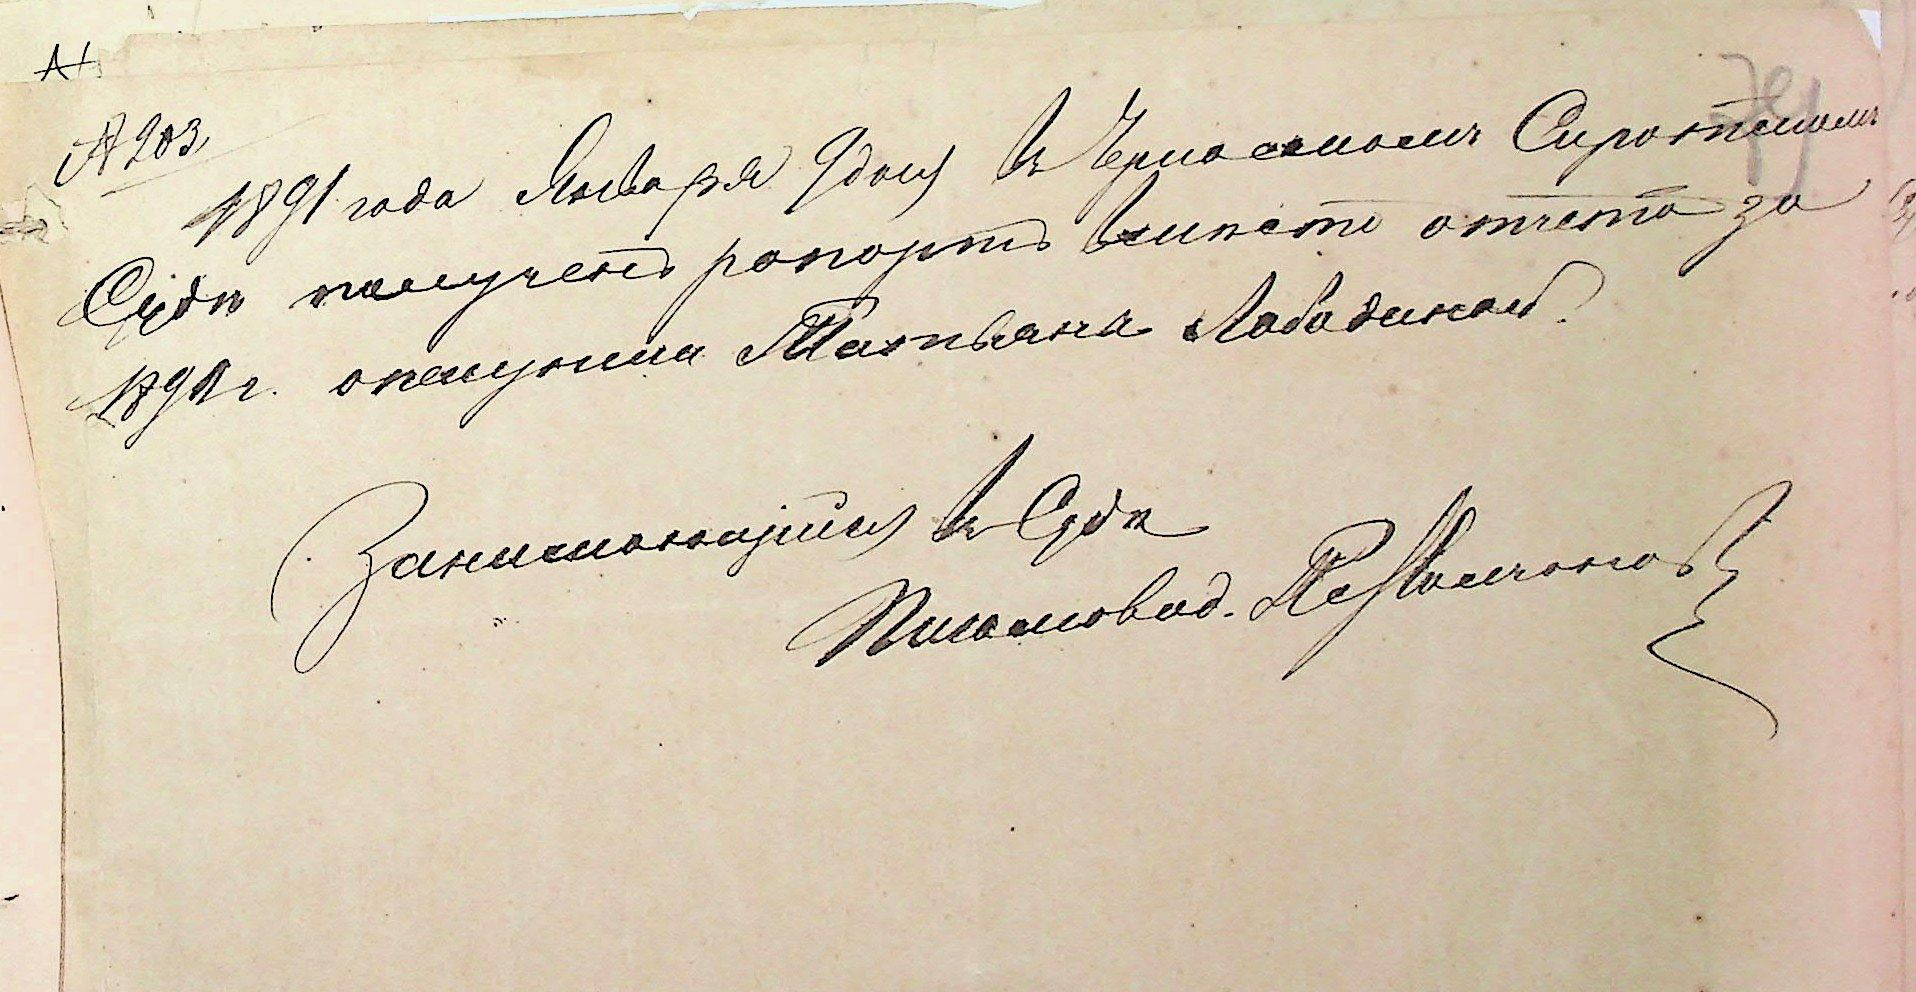 79
№ 203
1891 года Января 9 дня въ Черкасскомъ Сиротскомъ
Судѣ полученъ рапортъ вмѣсто отчета за
1890 г. опекунши Татьяны Лободиной.
Занимающійся въ Судѣ
Письмовод.